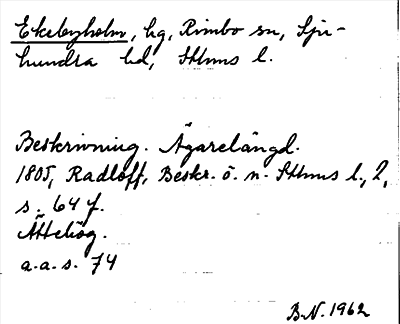 Ekebyholm, hg, Rimbo sn, Sju-
hundra hd, Sthms l.
Beskrivning. Ägarelängd.
1805, Radloff, Beskr. ö. n. Sthms l., 2,
s. 64 f.
Ättehög.
a.a. s. 74
B.N. 1962